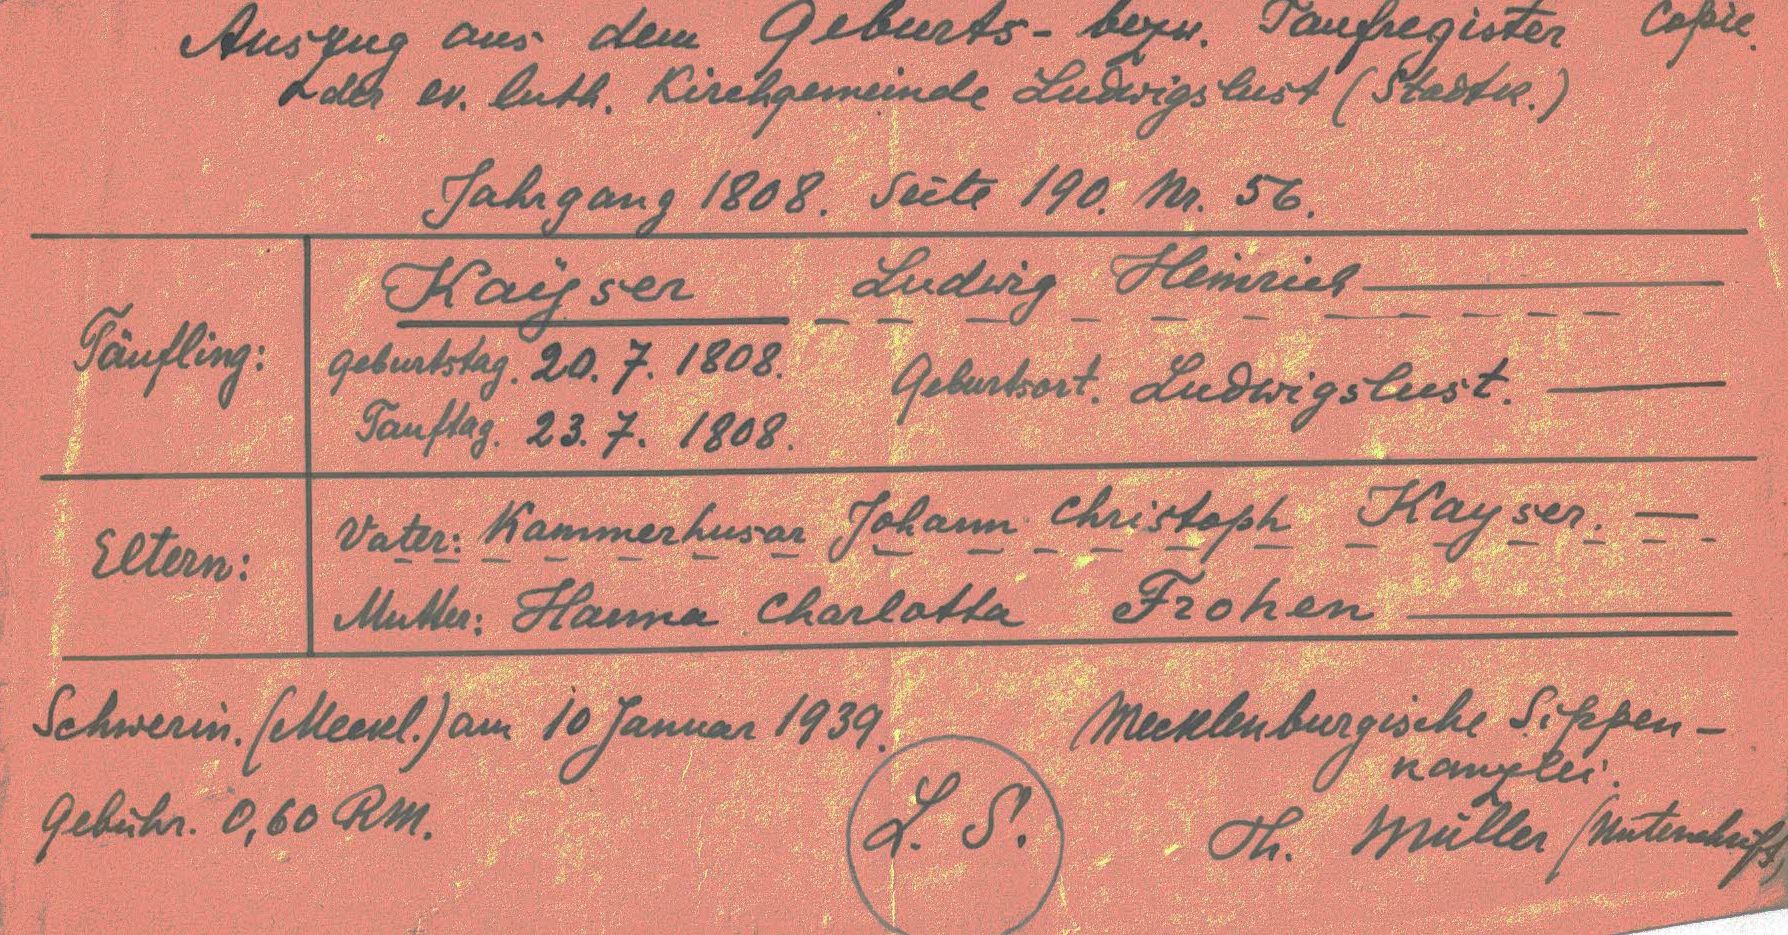 Auszug aus dem Geburts- bezw. Taufregister Copie.
der ev. luth. Kirchgemeinde Ludwigslust (Stadtk.)
Jahrgang 1808. Seite 190. Nr. 56.
Täufling:
Kaÿser Ludwig Heinrich
Geburtstag. 20. 7. 1808. Geburtsort. Ludwigslust.
Tauftag. 23. 7. 1808.
Eltern:
Vater: Kammerhusar Johann Christoph Kayser.
Mutter: Hanna Charlotta Frohen
Schwerin. (Meckl.) am 10 Januar 1939. Mecklenburgische Sippen-
kanzlei.
Gebühr. 0,60 RM. L. S. Th. Müller (Unterschrift)